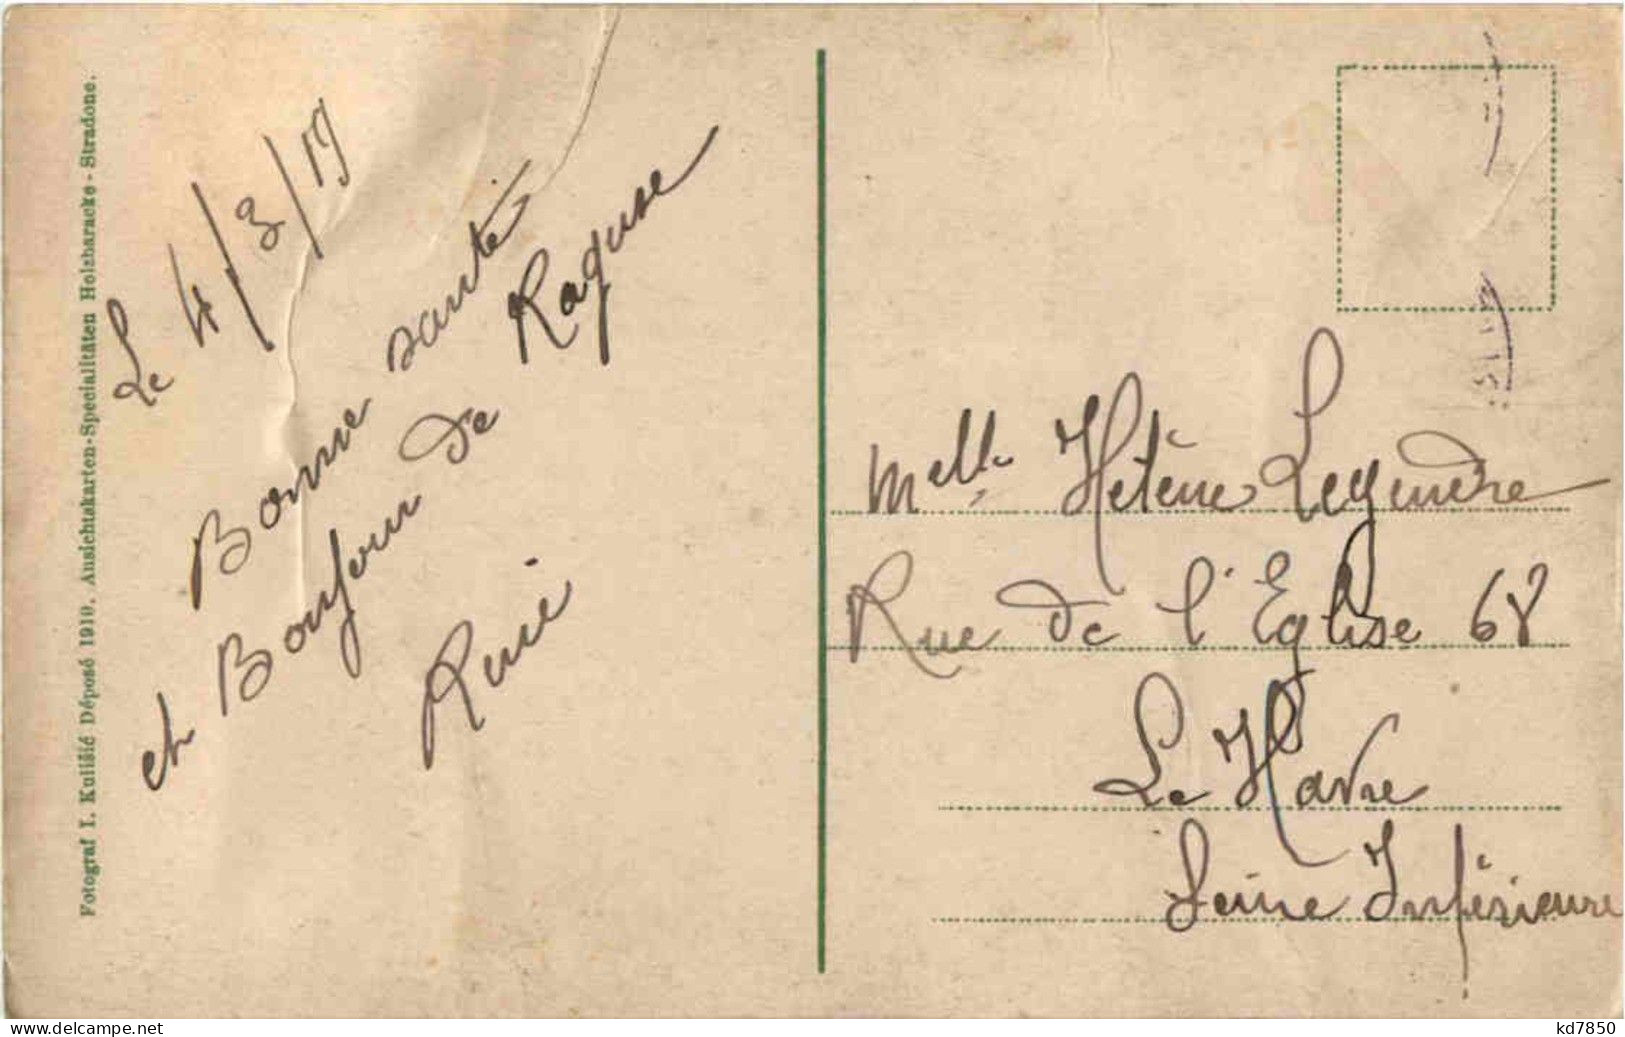 Fotograf I. Kulišić Déposé 1910. Ansichtskarten-Specialitäten Holzbaracke - Stradone.
Le 4/3/19
Bonne santé
et Bonjour de Raguse
René
Melle Hélène Legendre
Rue de l'Eglise 68
Le Havre
Seine Inférieure
kd7850